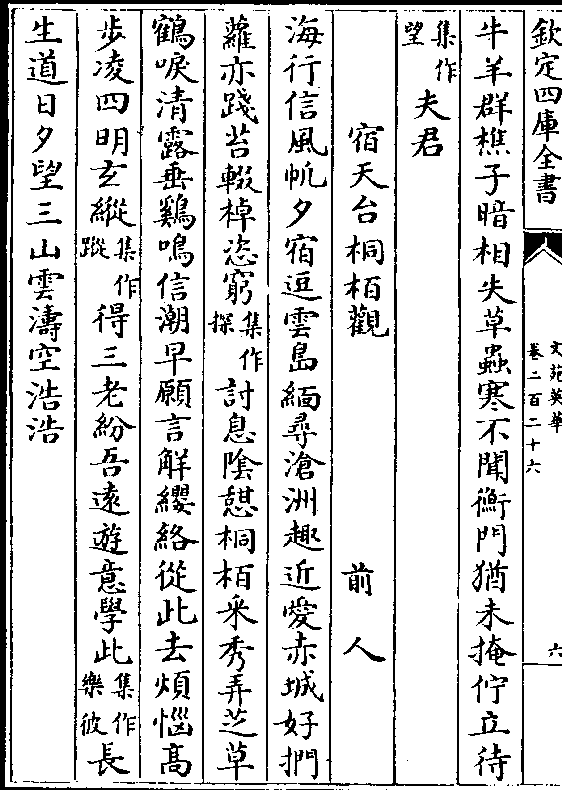 欽定四庫全書
文苑英華
卷二百二十六
六
牛羊群樵子暗相失草蟲寒不聞衡門猶未掩佇立待
集作望夫君
宿天台桐栢觀 前人
海行信風帆夕宿逗雲島緬尋滄洲趣近愛赤城好捫
蘿亦踐苔輟棹恣窮集作探討息陰憩桐栢采秀弄芝草
鶴唳清露垂鷄鳴信潮早願言解纓絡從此去煩惱高
步凌四明玄縱集作蹤得三老紛吾遠遊意學此集作樂彼長
生道日夕望三山雲濤空浩浩